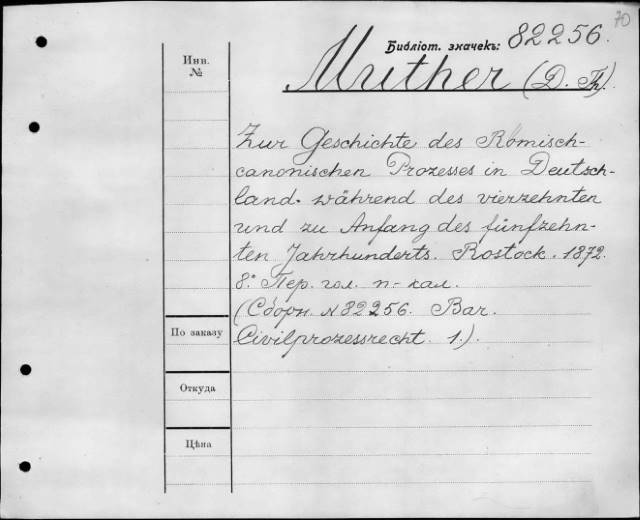 70
Библіот. значекъ: 82256.
Инв.
№
Muther (D. Th).
Zur Geschichte des Römisch-
canonischen Prozesses in Deutsch-
land. während des vierzehnten
und zu Anfang des fünfzehn-
ten Jahrhunderts. Rostock. 1872.
8.° Пер. гол. п-кал.
(Сборн. N 82256. Var.
Civilprozessrecht. 1.).
По заказу
Откуда
Цѣна